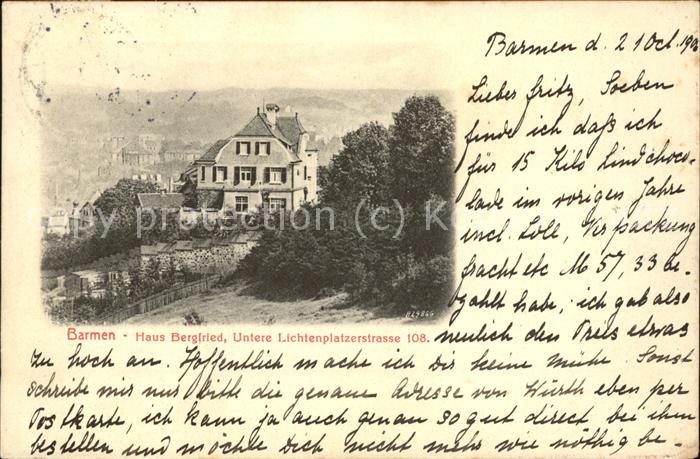 Barmen d. 21 Oct. 190
Lieber Fritz, Soeben
finde ich daß ich
für 15 Kilo Lindchoco-
lade im vorigen Jahre
incl. Zoll, Verpackung
fracht etc M 57,33 be-
zahlt habe, ich gab also
neulich den Preis etwas
zu hoch an. Hoffentlich mache ich Dir keine Mühe. Sonst
schreibe mir nur bitte die genaue Adresse von Würth eben per
Postkarte, ich kann ja auch genau so gut direct bei ihm
bestellen und möchte Dich nicht mehr wie nöthig be-
Barmen - Haus Bergfried, Untere Lichtenplatzerstrasse 108.
copy protection (c)